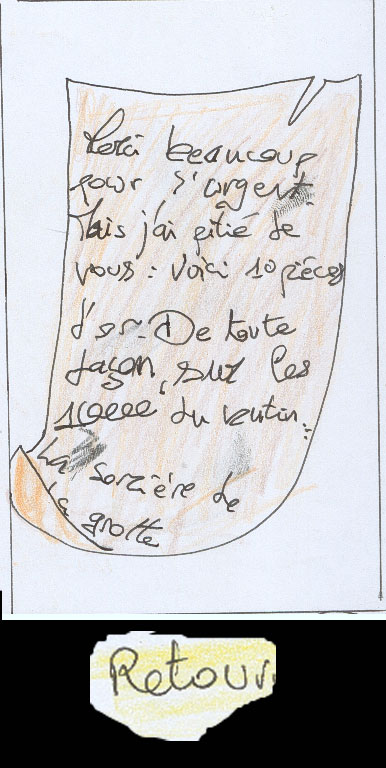 Merci beaucoup
pour l'argent.
Mais j'ai pitié de
vous : voici 10 pièces
d'or. De toute
façon, sur les
10000 du butin...
La sorcière de
la grotte
Retour